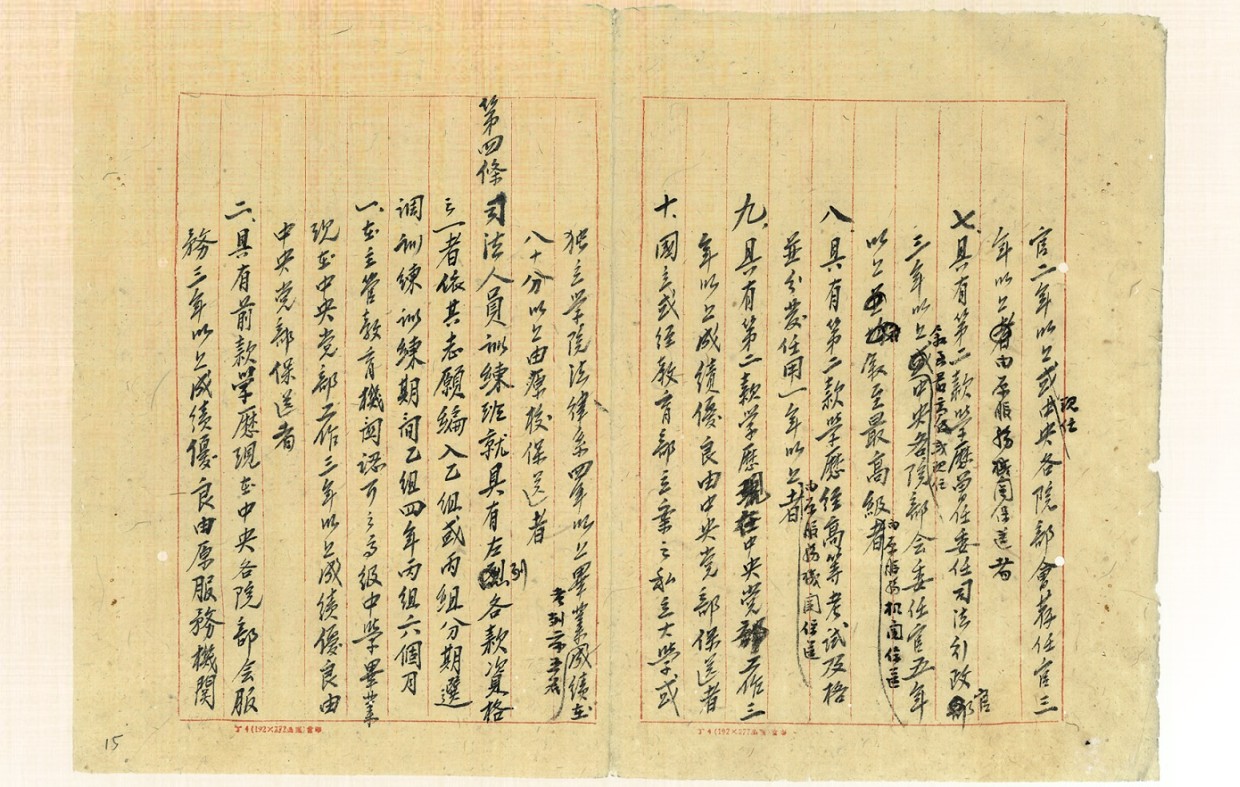 官二年以上或現任中央各院部會荐任官三
年以上者由原服務機関保送者
七、具有第二款学歷曽任委任司法行政官
三年以上或現任中央各院部会委任官五年
以上敘至最高級者由原服務机関保送
八、具有第二款学歷経高等考試及格
並分發任用一年以上者由原服務機関保送
九、具有第二款学歷現在中央党部工作三
年以上成績優良由中央党部保送者
十、國立或経教育部立案之私立大学或
独立学院法律系四年以上畢業成績在
八十分以上由原校保送者
第四條 司法人員訓練班就具有左列各款資格
之一者依其志願編入乙組或丙組分期選
调訓練訓練期间乙組四年丙組六個月
一、在主管教育機関認可之高级中学畢業
現在中央党部工作三年以上成績優良由
中央党部保送者
二、具有前款學歷現在中央各院部会服
務三年以上成績優良由原服務機関
15